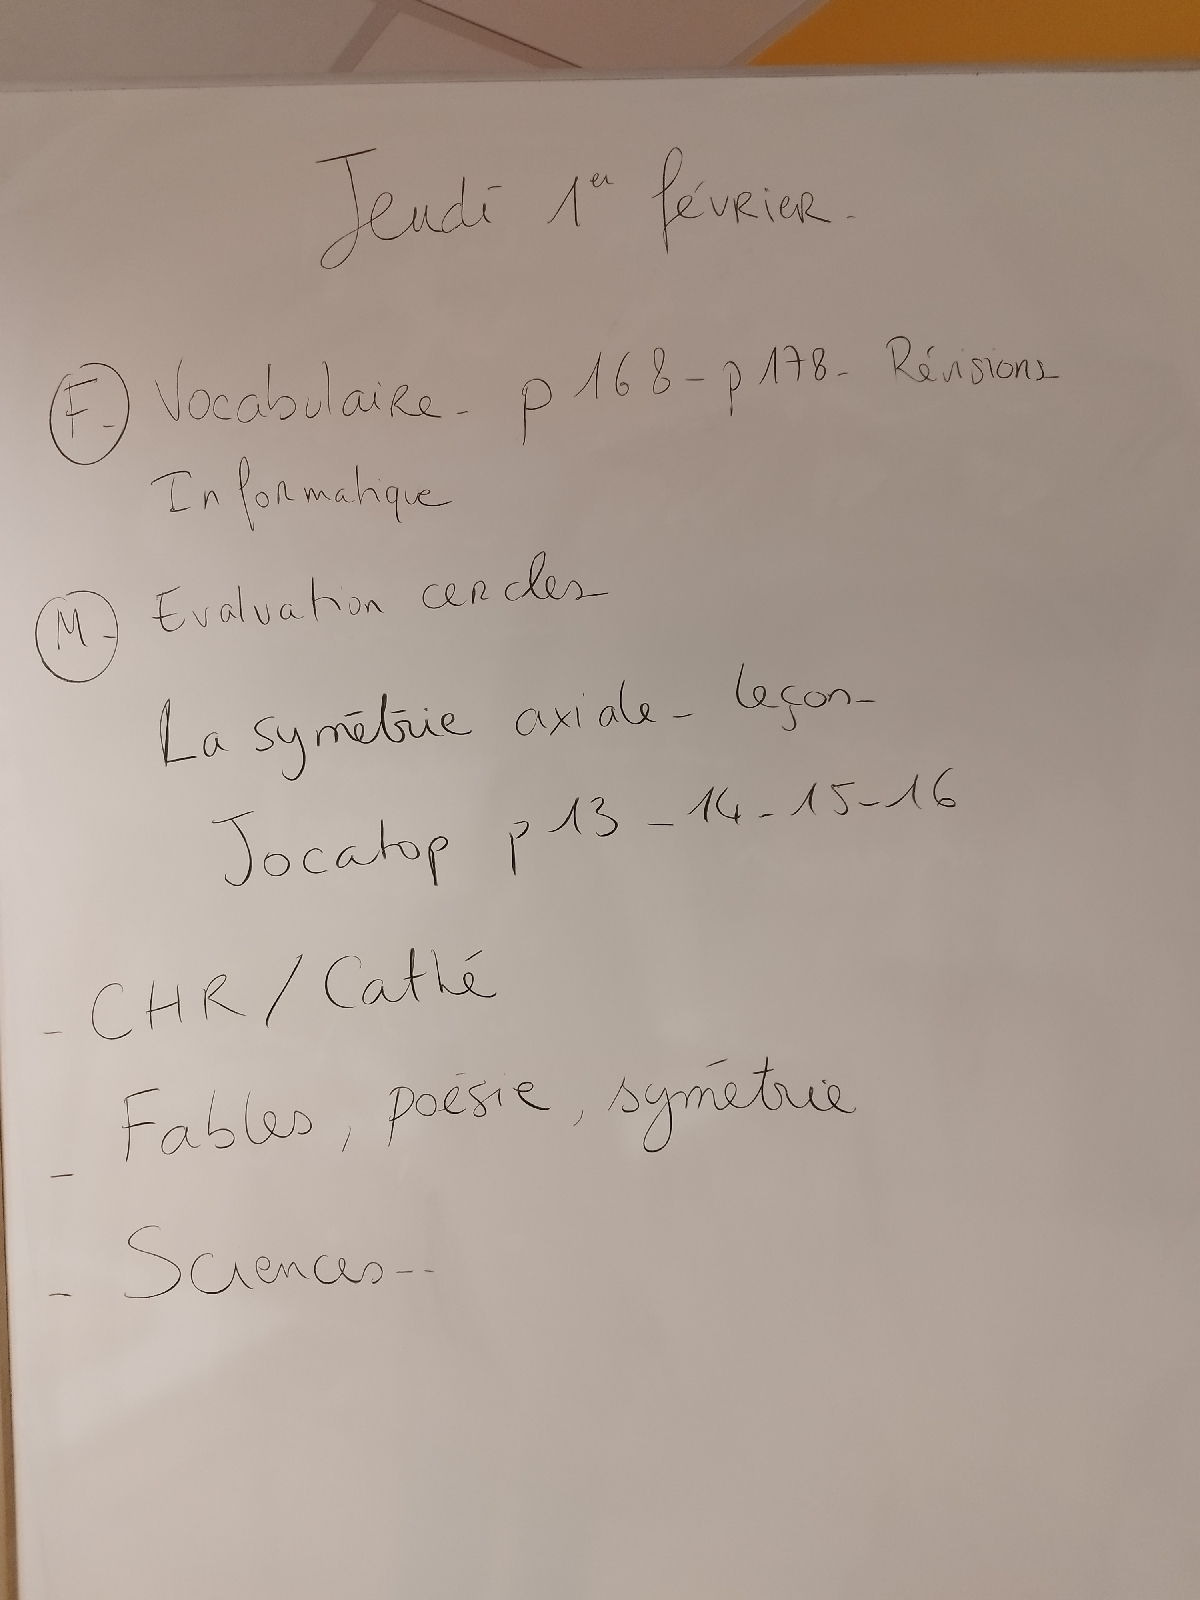 Jeudi 1er février.
F- Vocabulaire - p 168 - p 178 - Révisions
Informatique
M- Evaluation cercles
La symétrie axiale - leçon -
Jocatop p 13 - 14 - 15 - 16
- CHR / Cathé
- Fables, poésie, symétrie
- Sciences --